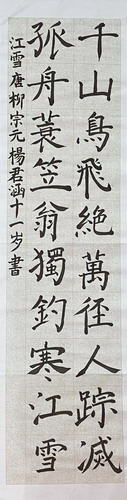 千山鳥飛絶萬径人踪滅
孤舟蓑笠翁獨釣寒江雪
江雪唐柳宗元楊君涵十一岁書